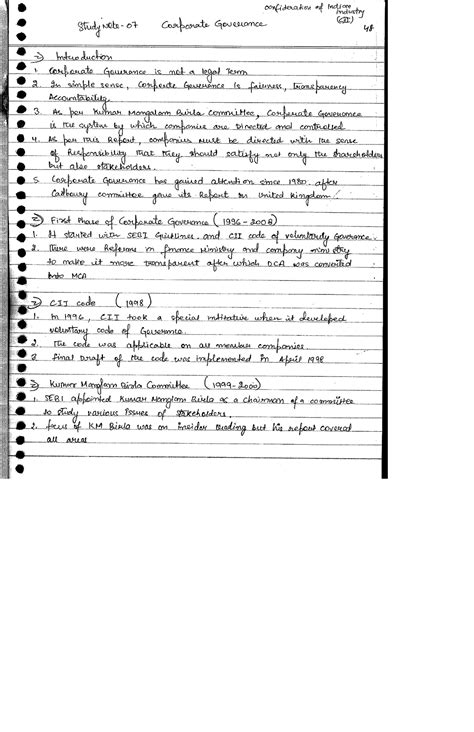 Confideration of Indian
Industry
(CII)
48
Study Note - 07 Corporate Governance
1) Introduction
1. Corporate Governance is not a legal Term
2. In simple sense, Corporate Governance is fairness, transparency
Accountability.
3. As per Kumar Mangalam Birla Committee, Corporate Governance
is the system by which companies are Directed and controlled
4. As per this Report, companies must be directed with the sense
of Responsibility that they should satisfy not only the shareholders
but also stakeholders.
5. Corporate Governance has gained attention since 1980. after
Cadbury committee gave its Report in United Kingdom.
2) First Phase of Corporate Governance (1996-2008)
1. It started with SEBI Guidelines and CII code of voluntary Governance.
2. There were Reforms in finance ministry and company ministry
to make it more transparent after which DCA was converted
into MCA
CII code (1998)
1. In 1996, CII took a special initiative when it developed
voluntary code of Governance.
2. The code was applicable on all member companies.
3. final Draft of the code was implemented in April 1998
3) Kumar Manglam Birla Committee (1999-2000)
1. SEBI appointed Kumar Manglam Birla as a chairman of a committee
to study various Issues of stakeholders.
2. focus of KM Birla was on insider trading but his report covered
all areas